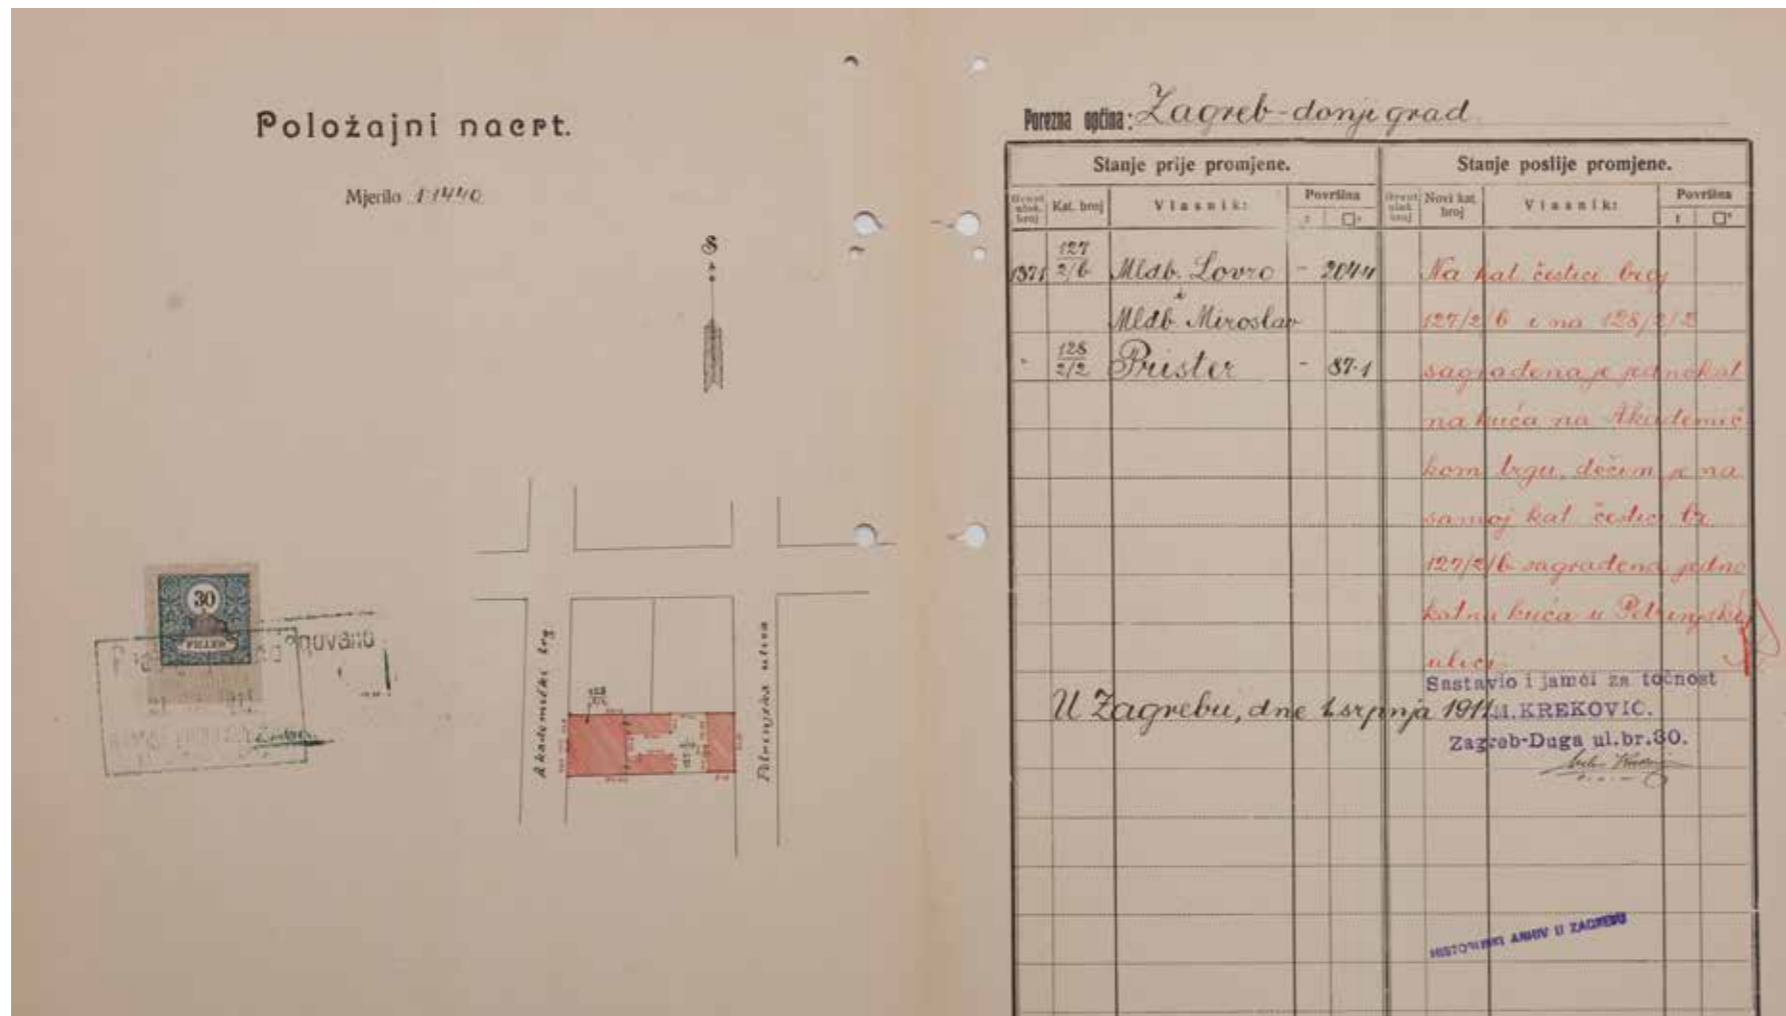 Položajni nacrt.
Mjerilo 1:1440
S
30
FILLER
Akademički trg
Petrinjska ulica
Porezna općina: Zagreb-donji grad
Stanje prije promjene.
Stanje poslije promjene.
Kat. broj
Vlasnik:
Površina
Novi kat. broj
Vlasnik:
Površina
1371 127 2/b Mldb. Lovro - 204·4
Mldb Miroslav
" 128 2/2 Prister - 87·1
Na kat. čestici broj
127/2/b i na 128/2/2
sagrađena je jednokat
na kuća na Akademič
kom trgu, dočim je na
samoj kat čestici br
127/2/b sagrađena jedno
katna kuća u Petrinjskoj
ulici.
U Zagrebu, dne 1 srpnja 1911
Sastavio i jamči za točnost
M. KREKOVIC.
Zagreb-Duga ul.br.30.
HISTORIJSKI ARHIV U ZAGREBU